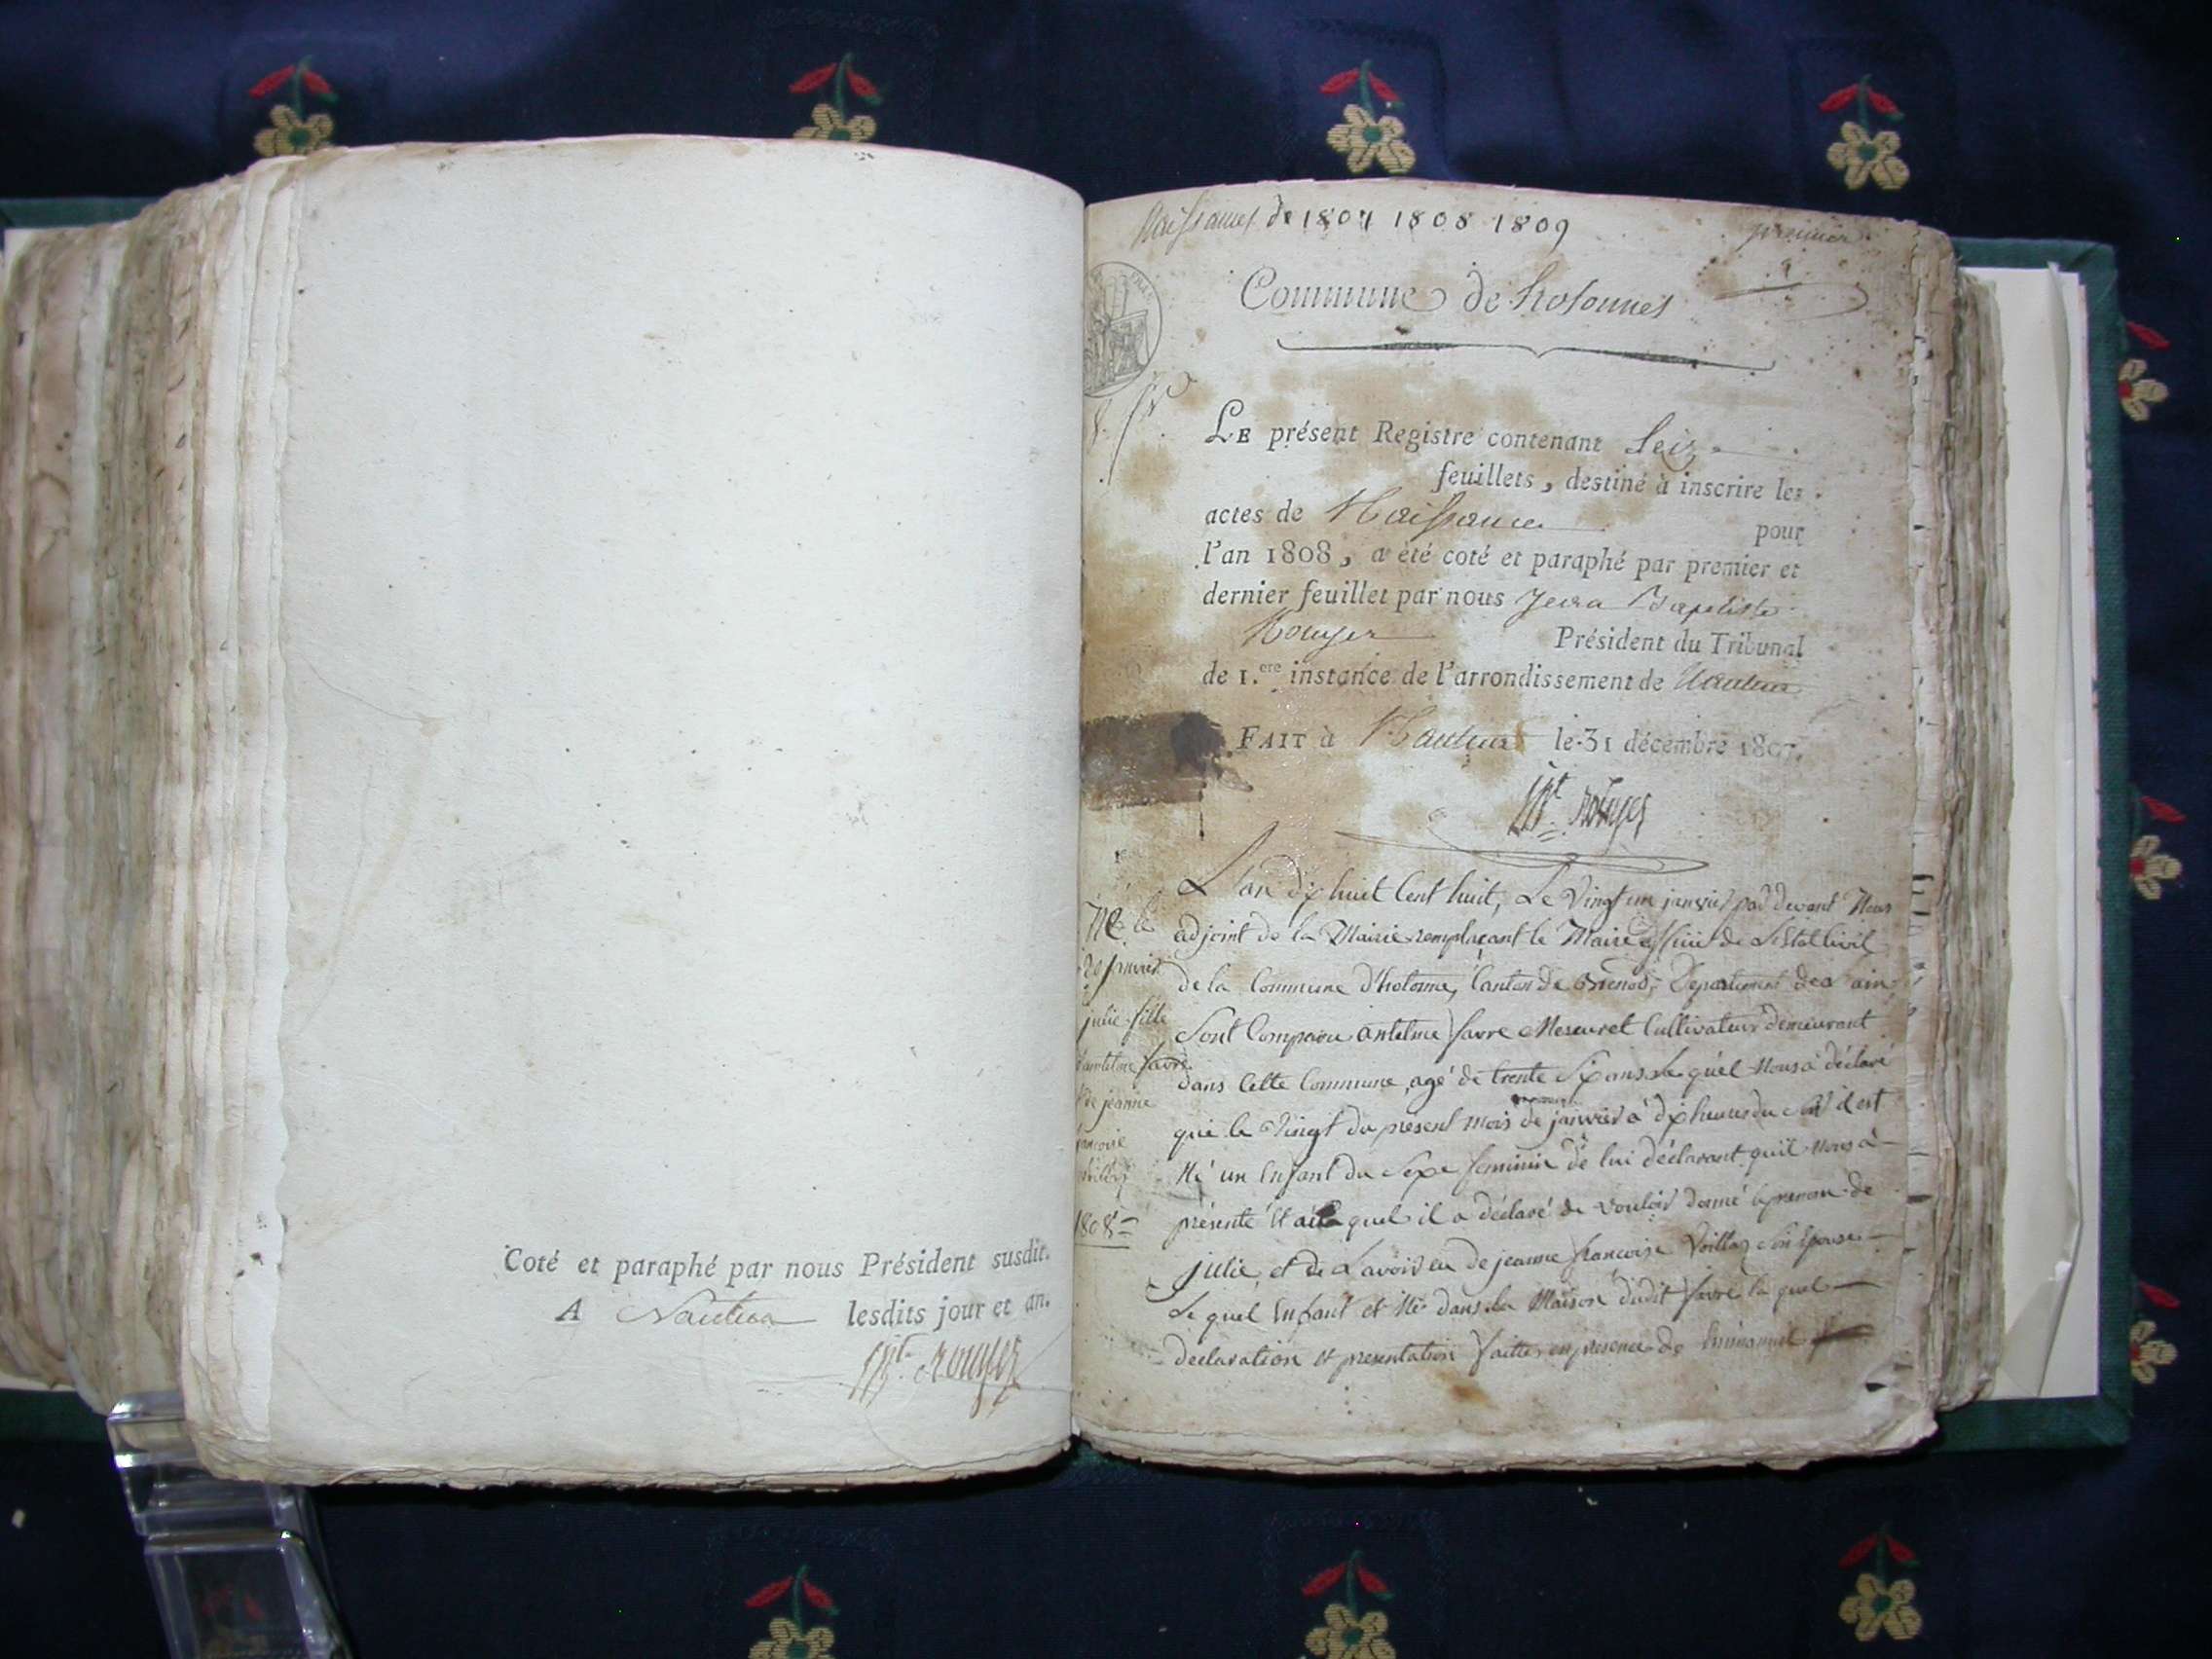 Coté et paraphé par nous Président susdit.
A Nantua lesdits jour et an.
JBte. rouyer
Naissances de 1807 1808 1809
premier
1
Commune de hotonnes
LE présent Registre contenant Seize
feuillets, destiné à inscrire les
actes de Naissance pour
l'an 1808, a été coté et paraphé par premier et
dernier feuillet par nous Jean Baptiste
Rouyer Président du Tribunal
de 1.ere instance de l'arrondissement de Nantua
FAIT à Nantua le 31 décembre 1807.
JBt. rouyer
L'an dix huit Cent huit, Le Vingt un janvier par devant Nous
adjoint de la Mairie remplaçant le Maire de L'Etat Civil
de la Commune d'hotonne, Canton de Brenod, Departement de ain
Sont Comparu antelme favre Cultivateur demeurant
dans Cette Commune, agé de trente Six ans Le quel Nous à déclaré
que le Vingt du present mois de janvier à dix heures du il est
Né un Enfant du Sexe feminin de lui déclarant quil Nous à
présenté Et quel il a déclaré de vouloir donné le prenom de
julie, et de L'avoir eu de jeanne françoise Son Epouse
Le quel Enfant et Né dans La Maison dudit favre la quel
declaration et presentation faittes en presence de
Né le
20 janvier
julie fille
d'antelme favre
de jeanne
françoise
1808